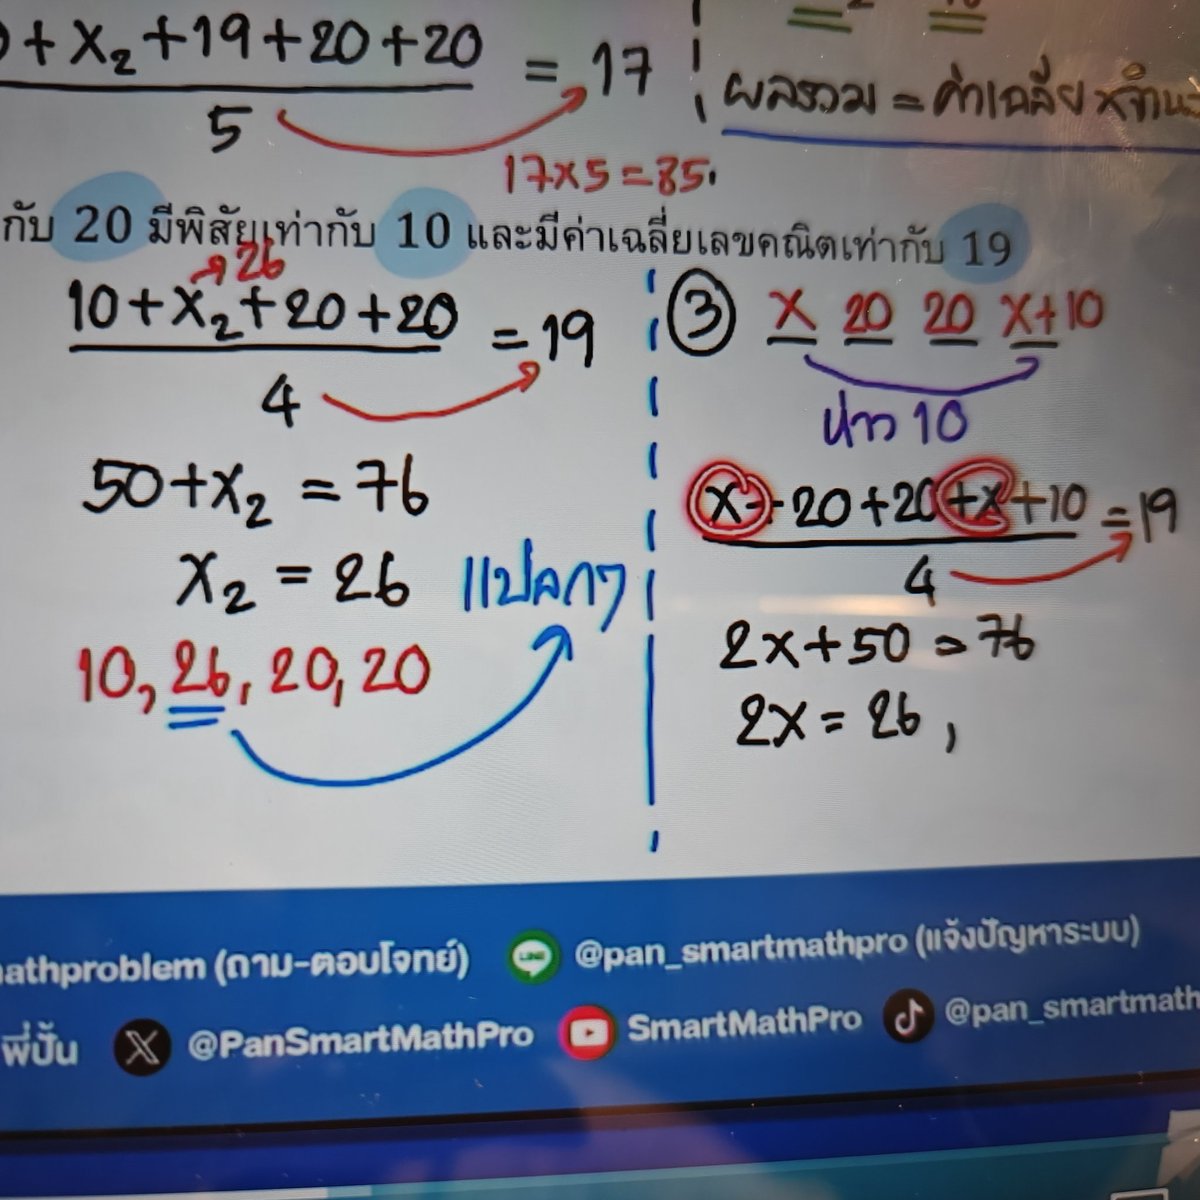 + x₂ + 19 + 20 + 20 = 17
5
17×5 = 85.
ผลรวม = ค่าเฉลี่ย ×
กับ 20 มีพิสัยเท่ากับ 10 และมีค่าเฉลี่ยเลขคณิตเท่ากับ 19
26
10 + x₂ + 20 + 20 = 19
4
50 + x₂ = 76
x₂ = 26
แปลกๆ
10, 26, 20, 20
③ x 20 20 x+10
ห่าง 10
x + 20 + 20 + x + 10 = 19
4
2x + 50 = 76
2x = 26 ,
athproblem (ถาม-ตอบโจทย์) LINE @pan_smartmathpro (แจ้งปัญหาระบบ)
พี่ปั้น X @PanSmartMathPro SmartMathPro @pan_smartmath